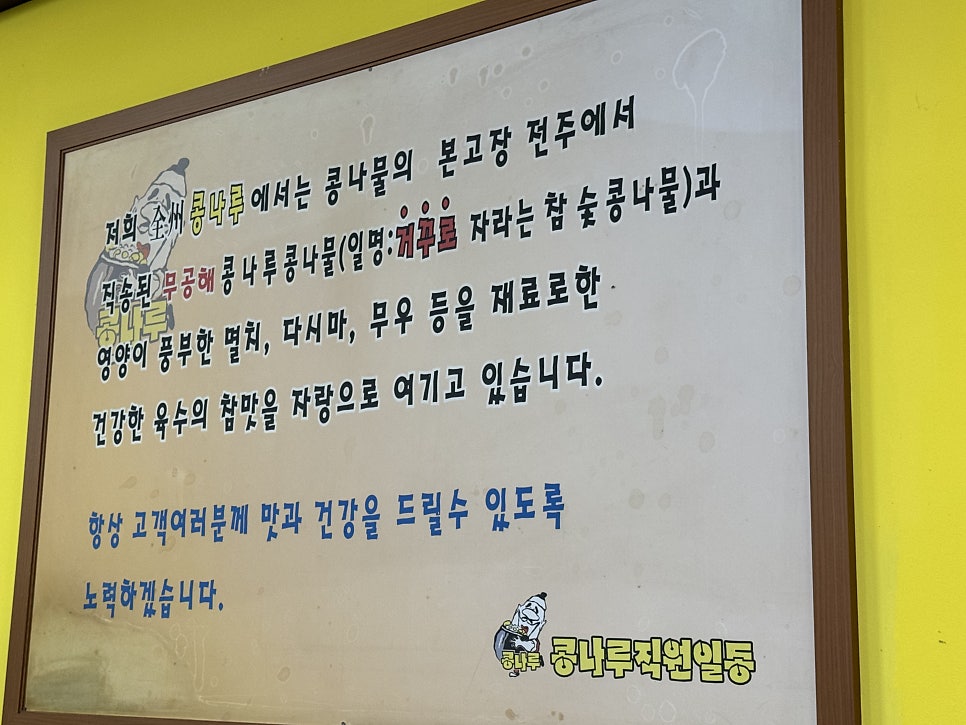 저희 全州 콩나루에서는 콩나물의 본고장 전주에서
직송된 무공해 콩나루콩나물(일명:거꾸로 자라는 참 숯콩나물)과
콩나루
영양이 풍부한 멸치, 다시마, 무우 등을 재료로한
건강한 육수의 참맛을 자랑으로 여기고 있습니다.
항상 고객여러분께 맛과 건강을 드릴수 있도록
노력하겠습니다.
콩나루
콩나루직원일동